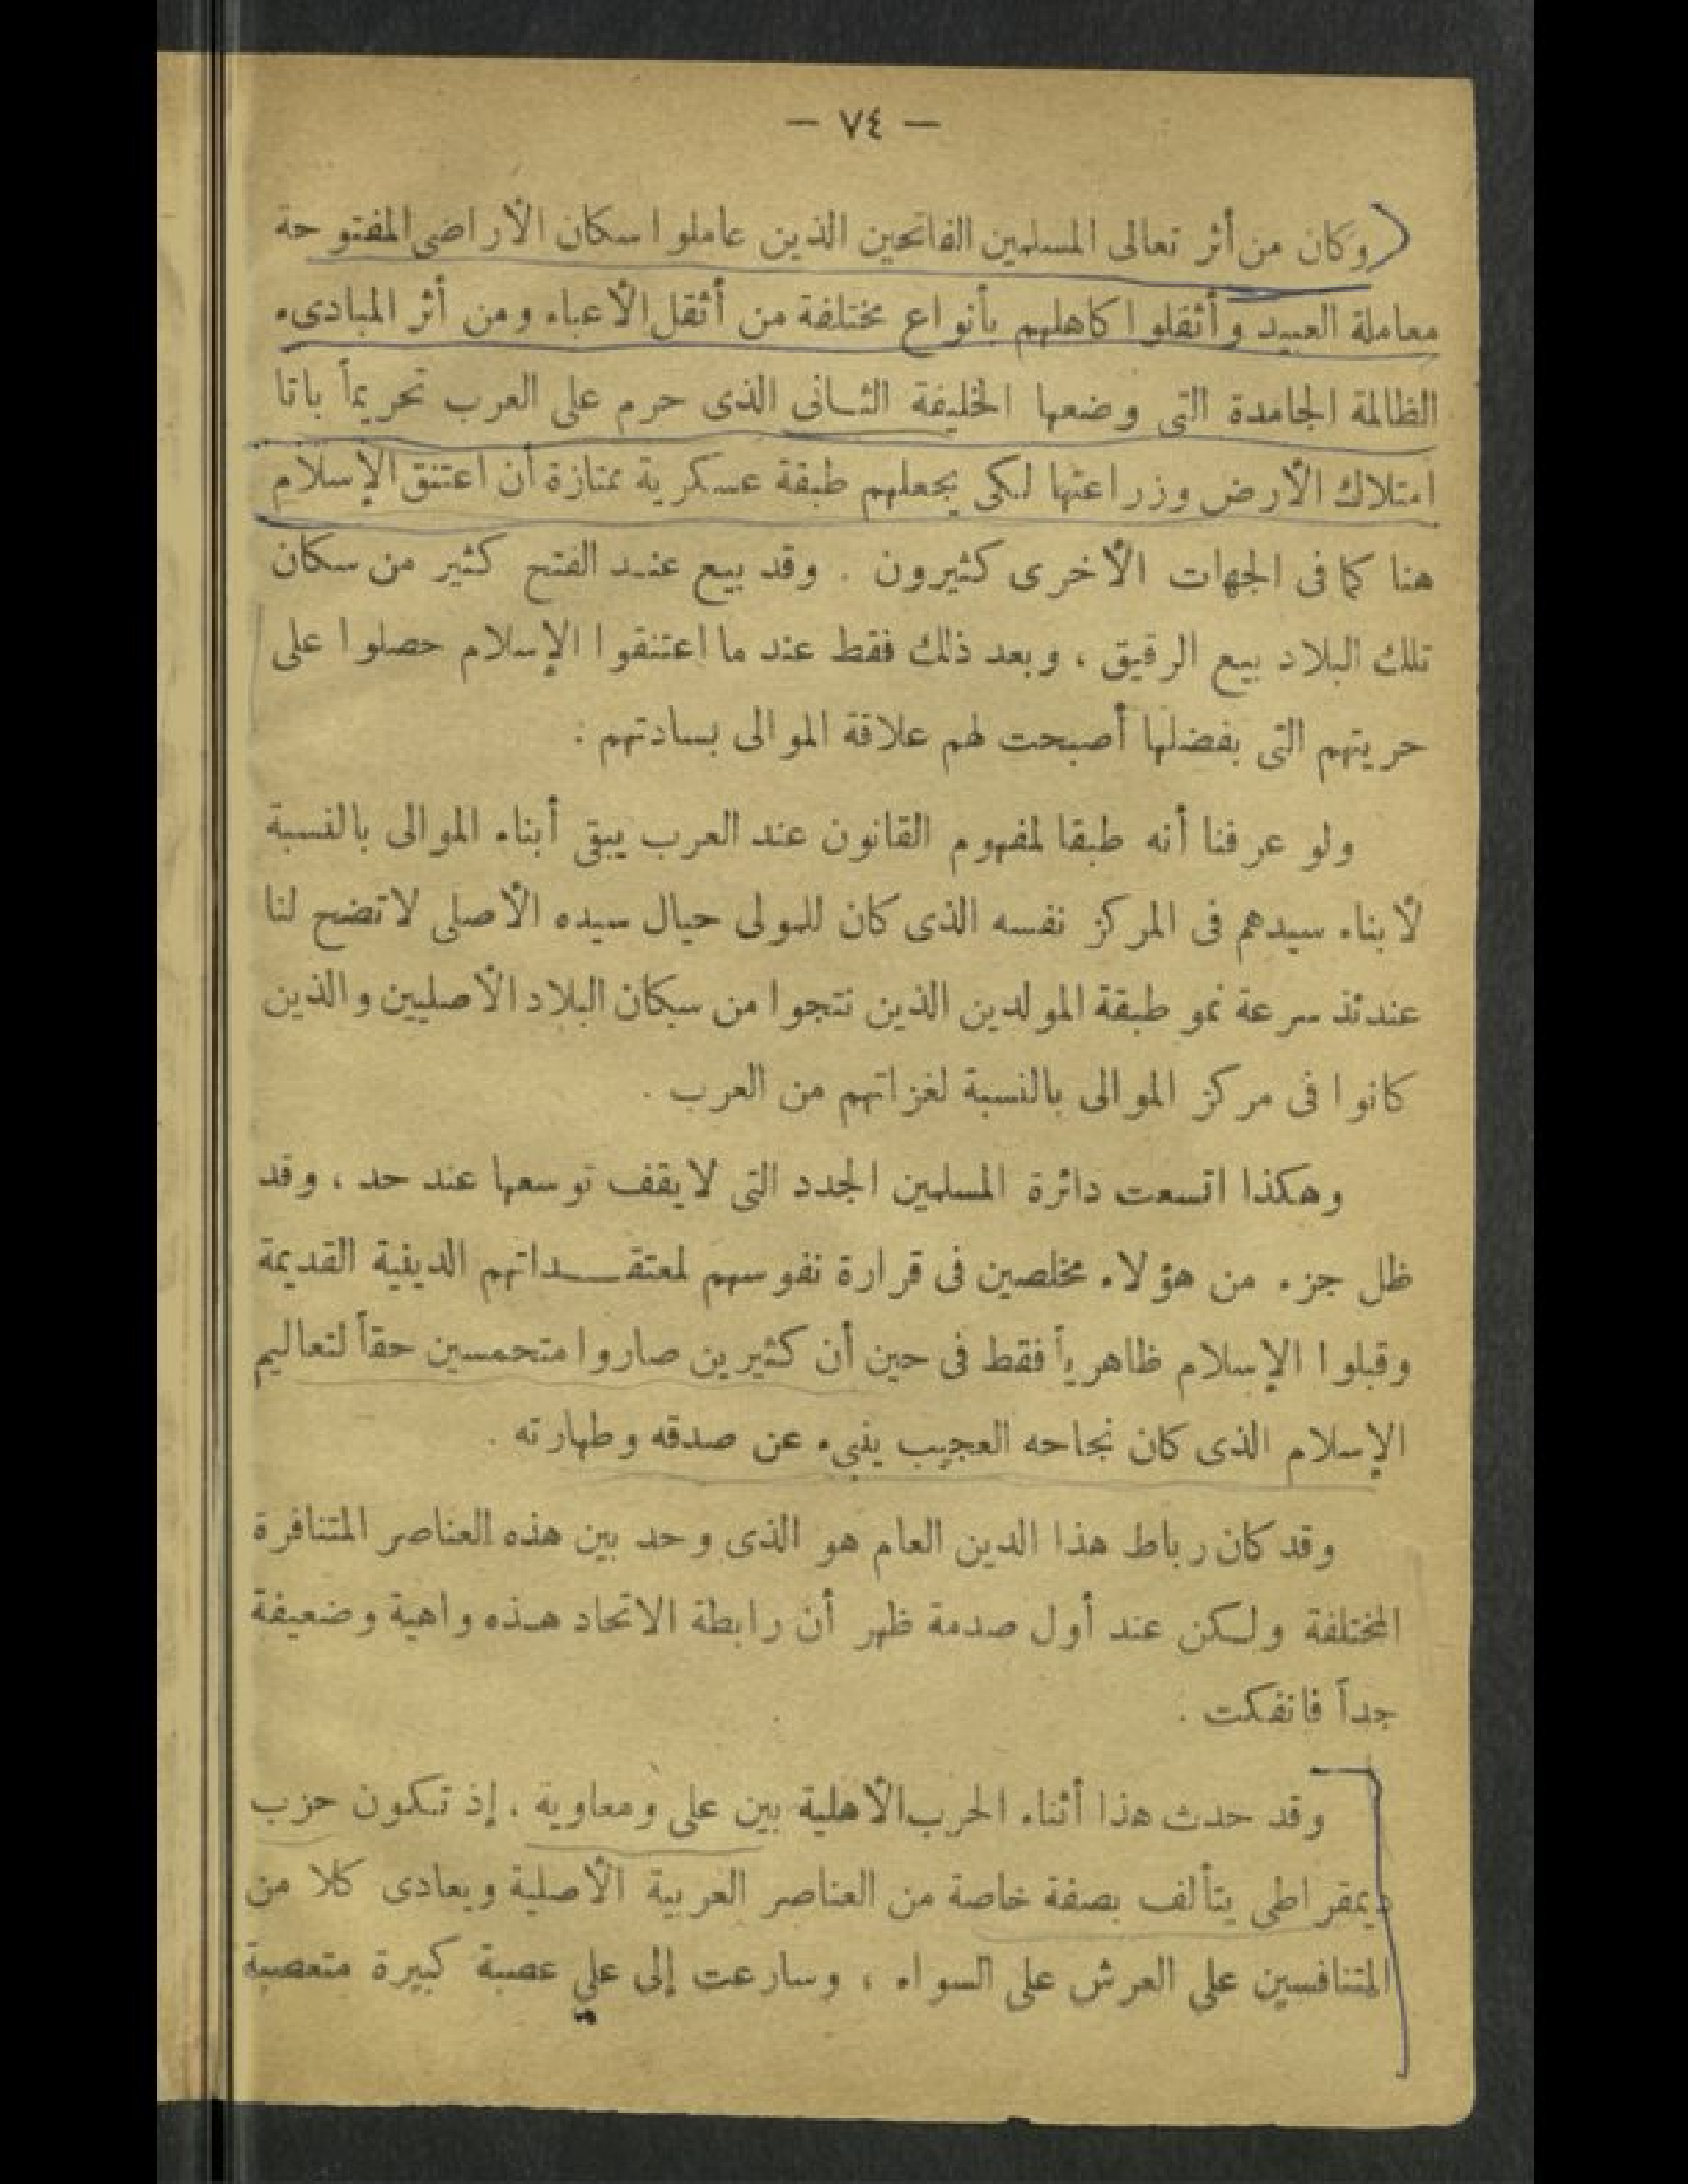 — ٧٤ —
وكان من أثر تعالى المسلمين الفاتحين الذين عاملوا سكان الأراضى المفتوحة
معاملة العبيد وأثقلوا كاهلهم بأنواع مختلفة من أثقل الأعباء ومن أثر المبادىء
الظالمة الجامدة التى وضعها الخليفة الثانى الذى حرم على العرب تحريماً باتا
امتلاك الأرض وزراعتها لكى يجعلهم طبقة عسكرية ممتازة أن اعتنق الإسلام
هنا كما فى الجهات الأخرى كثيرون . وقد بيع عند الفتح كثير من سكان
تلك البلاد بيع الرقيق ، وبعد ذلك فقط عند ما اعتنقوا الإسلام حصلوا على
حريتهم التى بفضلها أصبحت لهم علاقة الموالى بسادتهم :
ولو عرفنا أنه طبقا لمفهوم القانون عند العرب يبقى أبناء الموالى بالنسبة
لأبناء سيدهم فى المركز نفسه الذى كان للمولى حيال سيده الأصلى لاتضح لنا
عندئذ سرعة نمو طبقة المولدين الذين نتجوا من سكان البلاد الأصليين والذين
كانوا فى مركز الموالى بالنسبة لغزاتهم من العرب .
وهكذا اتسعت دائرة المسلمين الجدد التى لا يقف توسعها عند حد ، وقد
ظل جزء من هؤلاء مخلصين فى قرارة نفوسهم لمعتقـــداتهم الدينية القديمة
وقبلوا الإسلام ظاهرياً فقط فى حين أن كثيرين صاروا متحمسين حقاً لتعاليم
الإسلام الذى كان نجاحه العجيب ينبىء عن صدقه وطهارته .
وقد كان رباط هذا الدين العام هو الذى وحد بين هذه العناصر المتنافرة
المختلفة ولكن عند أول صدمة ظهر أن رابطة الاتحاد هذه واهية وضعيفة
جداً فانفكت .
وقد حدث هذا أثناء الحرب الأهلية بين على ومعاوية . إذ تكون حزب
ديمقراطى يتألف بصفة خاصة من العناصر العربية الأصلية ويعادى كلا من
المتنافسين على العرش على السواء ، وسارعت إلى علي عصبة كبيرة متعصبة